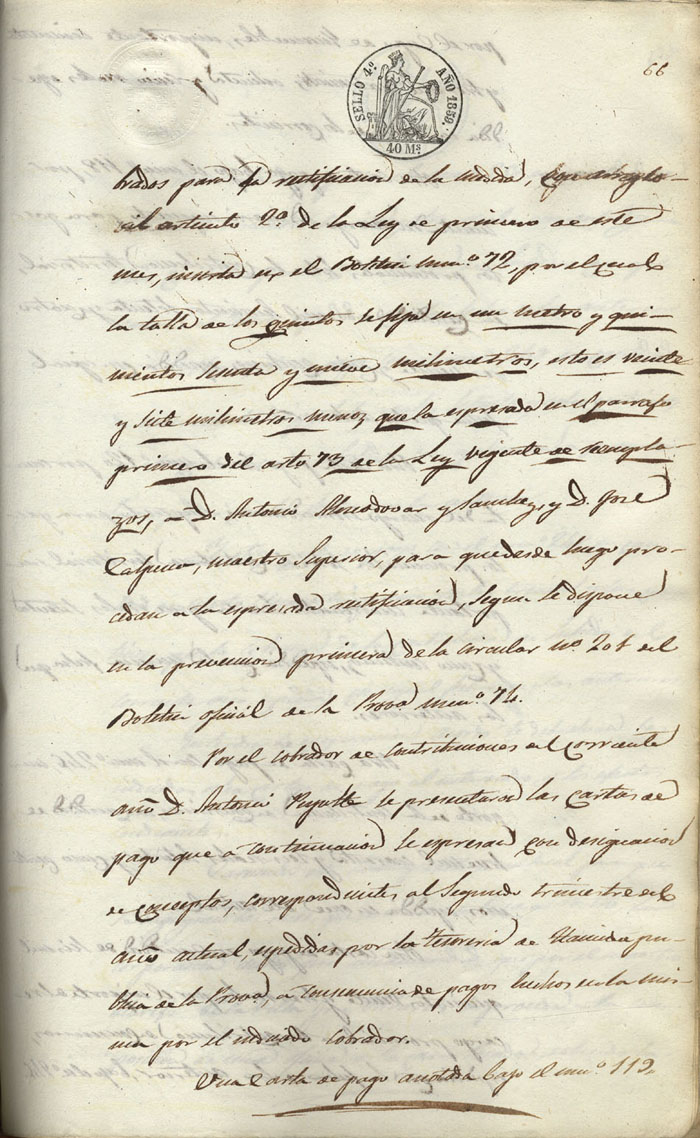 66
SELLO 4.º AÑO 1859.
40 Ms
brados para la rectificacion de la medida, con arreglo
al articulo 2.º de la Ley de primero de este
mes, inserta en el Boletin num.º 72, por el cual
la talla de los quintos se fija en un metro y qui-
nientos sesenta y nueve milimetros, esto es veinte
y siete milimetros menos que la espresada en el parrafo
primero del arto 73 de la Ley vigente de reempla-
zos, a D. Antonio Almodovar y Sanchez, y D. José
Calpena, maestro Superior, para que desde luego pro-
cedan a la espresada rectificacion, segun se dispone
en la prevencion primera de la circular nº 201 del
Boletin oficial de la Prova num.º 74.
Por el cobrador de contribuciones del corriente
año D. Antonio se presentaron las cartas de
pago que a continuacion se espresan con designacion
de conceptos, correspondientes al Segundo trimestre del
año actual, espedidas por la Tesoreria de Hacienda pu-
blica de la Prova, a consecuencia de pagos hechos en la mis-
ma por el indicado cobrador.
Una Carta de pago anotada bajo el num.º 112.